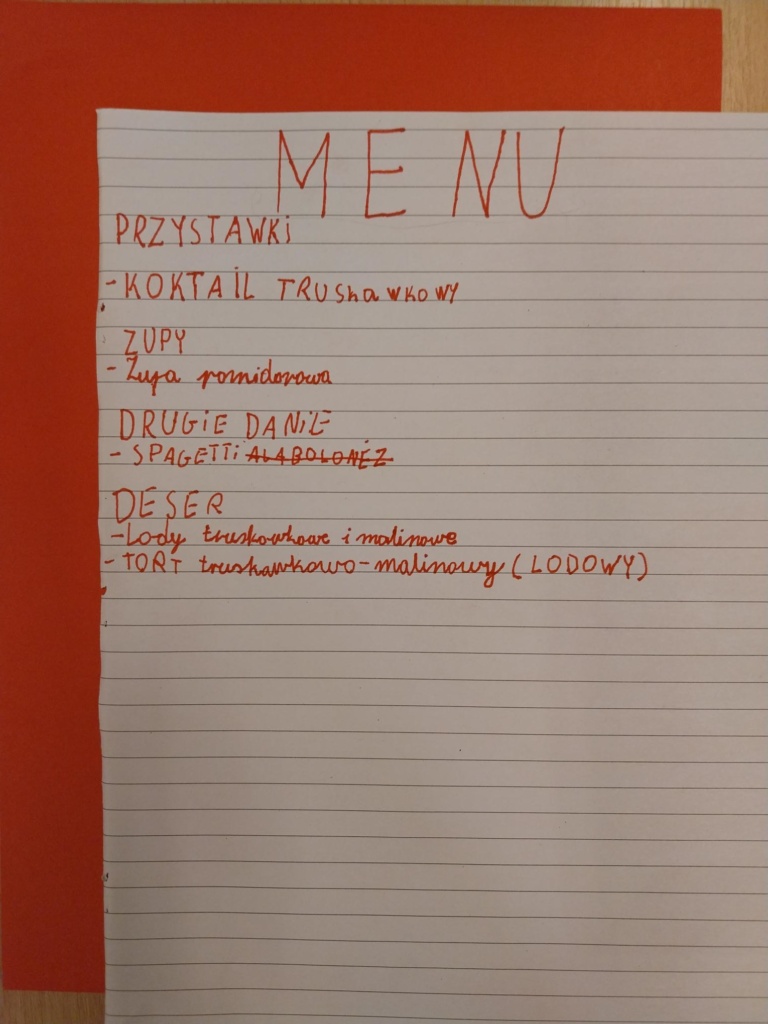 MENU
PRZYSTAWKi
- KOKTAiL TRUSkawkowy
ZUPY
- Zupa pomidorowa
DRUGiE DANiE
- SPAGETTi ALABOLONEZ
DESER
- Lody truskawkowe i malinowe
- TORT truskawkowo-malinowy (LODOWY)